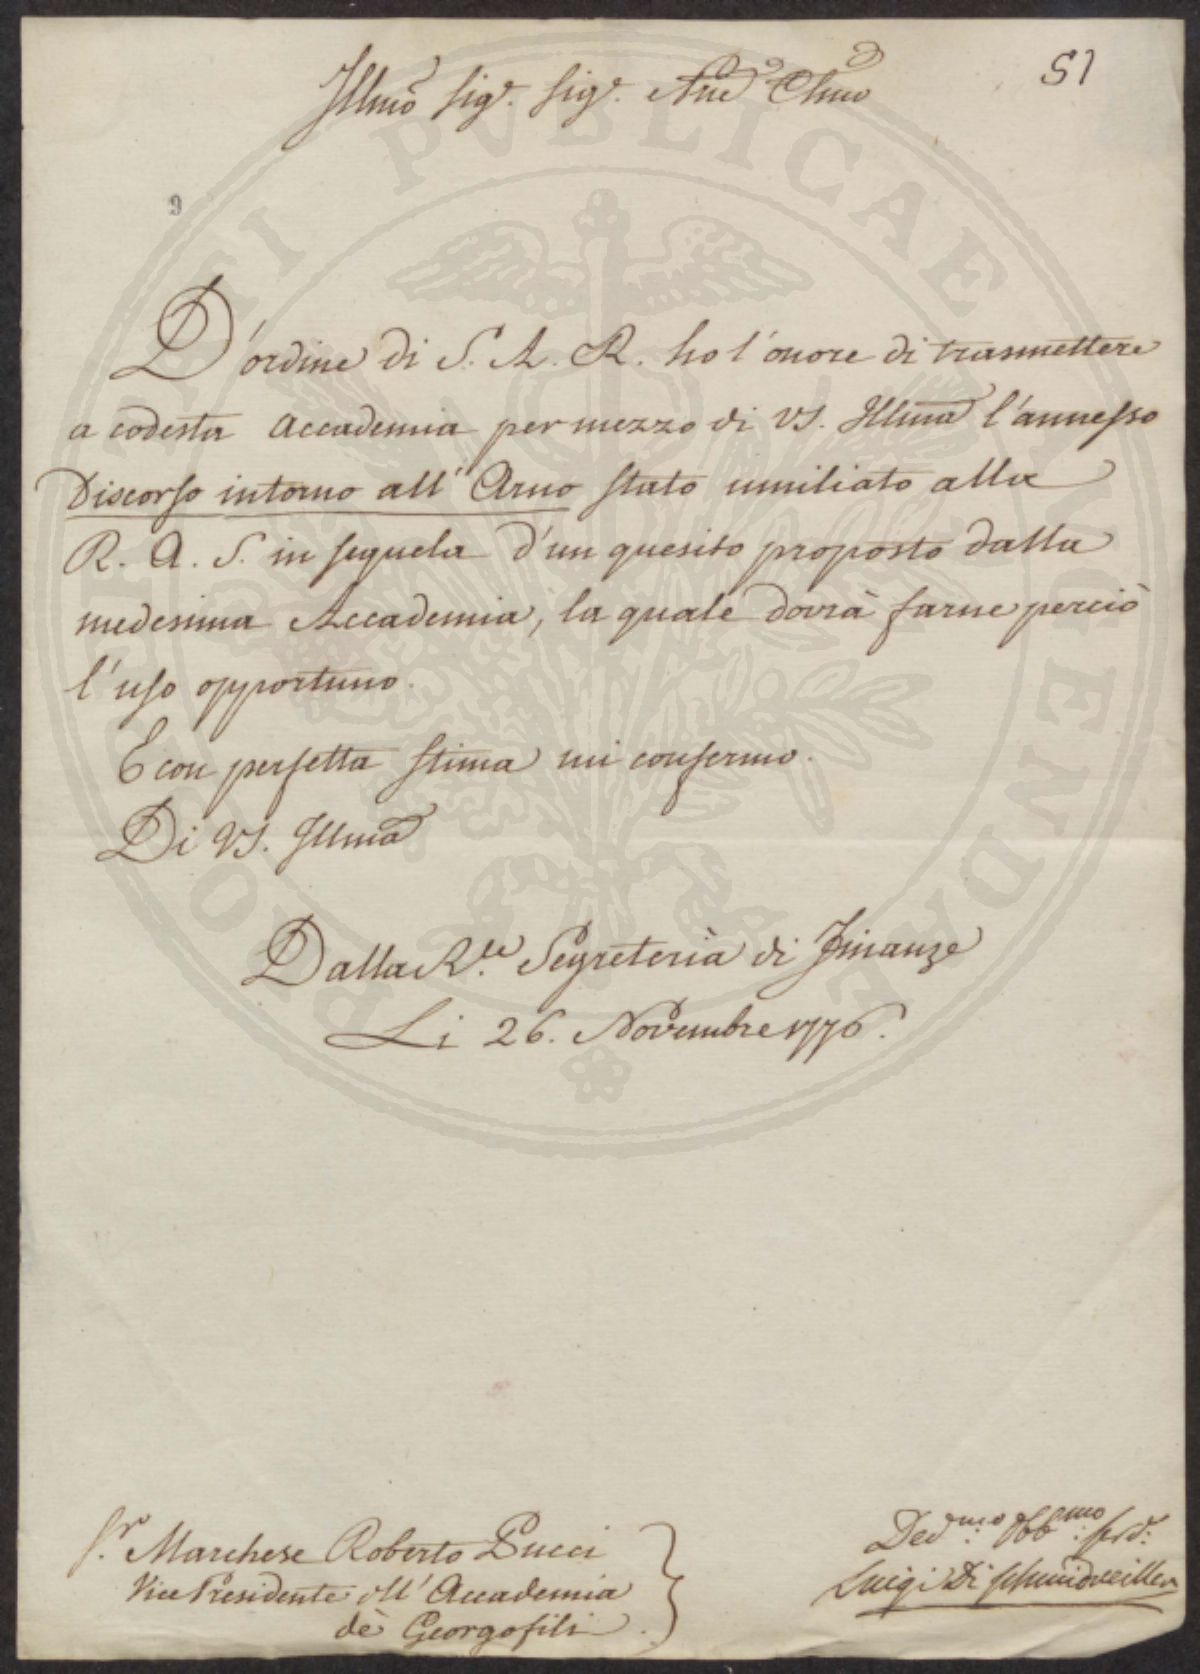 51
Illmo Sigr. Sigr. Prone Clmo
9
D'ordine di S. A. R. ho l'onore di trasmettere
a codesta Accademia per mezzo di VS. Illma l'annesso
Discorso intorno all'Arno stato umiliato alla
R. A. S. in sequela d'un quesito proposto dalla
medesima Accademia, la quale dovrà farne perciò
l'uso opportuno.
E con perfetta stima mi confermo.
Di VS. Illma
Dalla R.le Segreteria di Finanze
Li 26. Novembre 1776.
Sr. Marchese Roberto Pucci
Vice Presidente dell'Accademia
dè Georgofili.
Dedmo: Obbmo: Serv:
Luigi Di Schmidveiller
PROSPERITATI PVBLICAE AVGENDAE